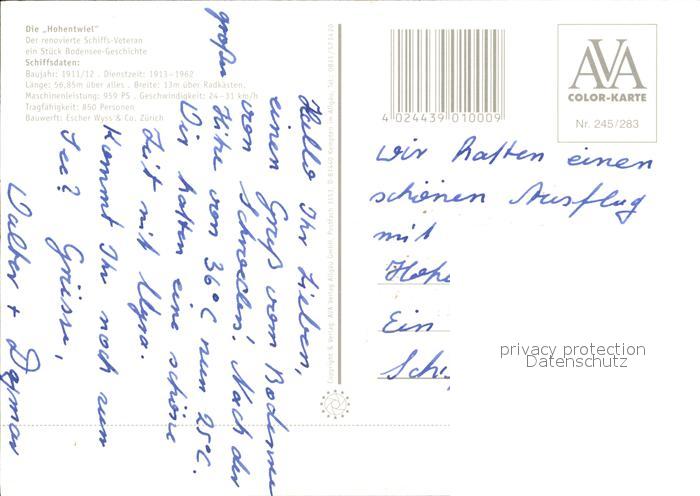 Die „Hohentwiel"
Der renovierte Schiffs-Veteran
ein Stück Bodensee-Geschichte
Schiffsdaten:
Baujahr: 1911/12 . Dienstzeit: 1913–1962
Länge: 56,85m über alles . Breite: 13m über Radkästen.
Maschinenleistung: 959 PS . Geschwindigkeit: 24–31 km/h
Tragfähigkeit: 850 Personen
Bauwerft: Escher Wyss & Co. Zürich
Hallo Ihr Lieben,
einen Gruß vom Bodensee
von Schweden! Nach der
großen Hitze von 36°C nun 25°C.
Wir hatten eine schöne
Zeit mit
Kommt Ihr noch zum
See? Grüsse,
Walter + Dagmar
Copyright & Verlag: AVA Verlag Allgäu GmbH, Postfach
4 024439 010009
AVA
COLOR-KARTE
Nr. 245/283
Wir hatten einen
schönen Ausflug
mit
Hohe
Ein
Schi
privacy protection
Datenschutz